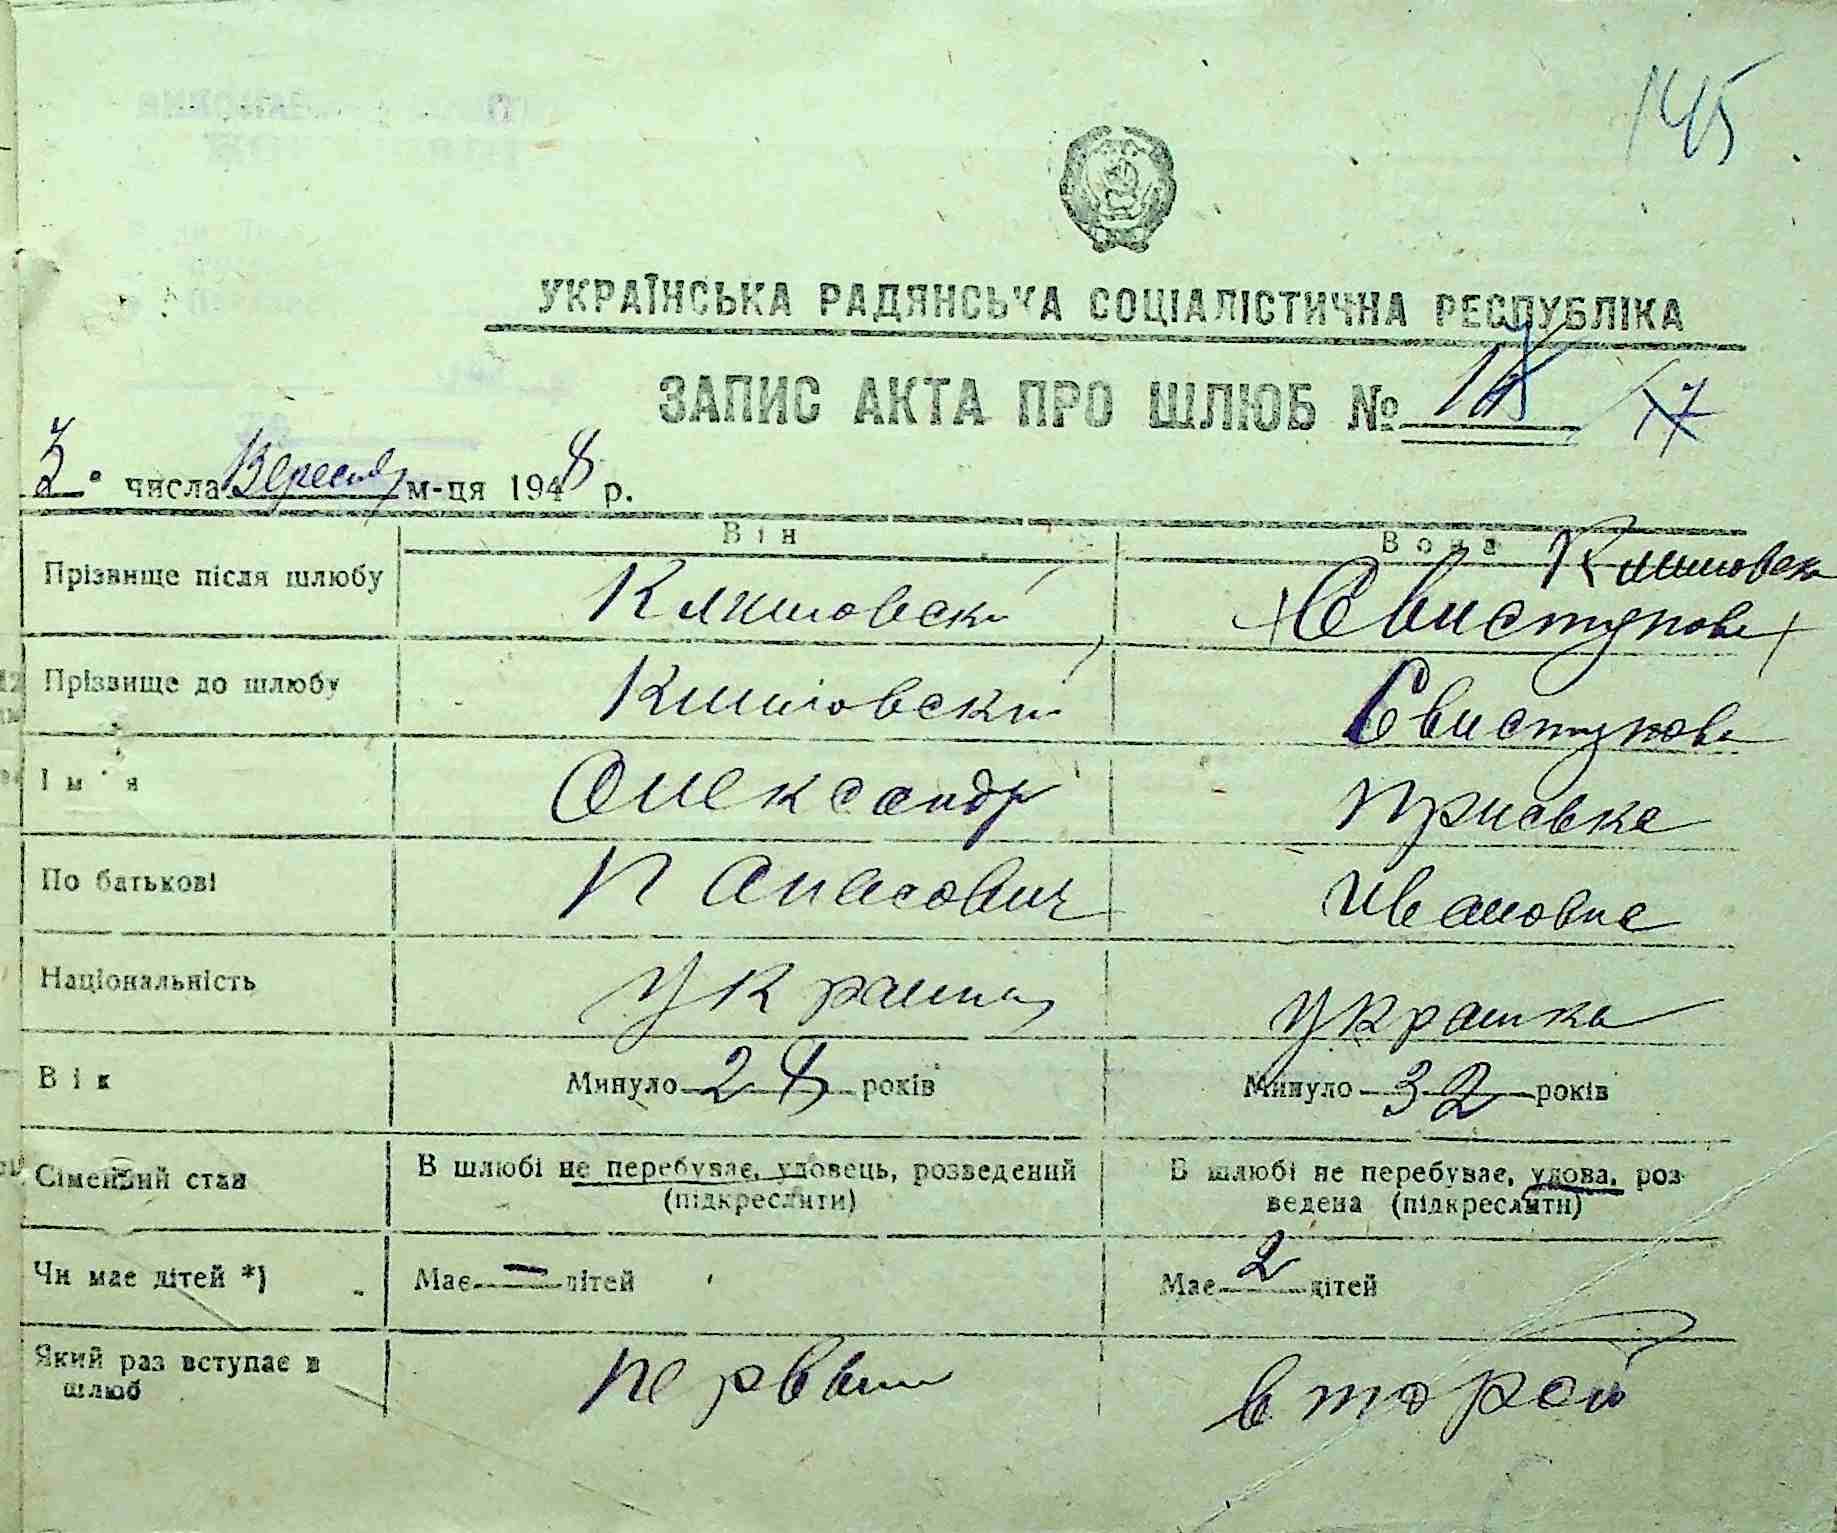 145
УКРАЇНСЬКА РАДЯНСЬКА СОЦІАЛІСТИЧНА РЕСПУБЛІКА
ЗАПИС АКТА ПРО ШЛЮБ №
17
3 числа Вересня м-ця 1948 р.
Він Вона
Прізвище після шлюбу Свистунова
Прізвище до шлюбу Свистунова
Ім'я Олександр Приська
По батькові Панасович Ивановна
Національність Украінец Украінка
Вік Минуло 28 років Минуло 32 років
Сімейний стан В шлюбі не перебуває, удовець, розведений (підкреслити) В шлюбі не перебуває, удова, розведена (підкреслити)
Чи має дітей *) Має — дітей Має 2 дітей
Який раз вступає в шлюб первый второй